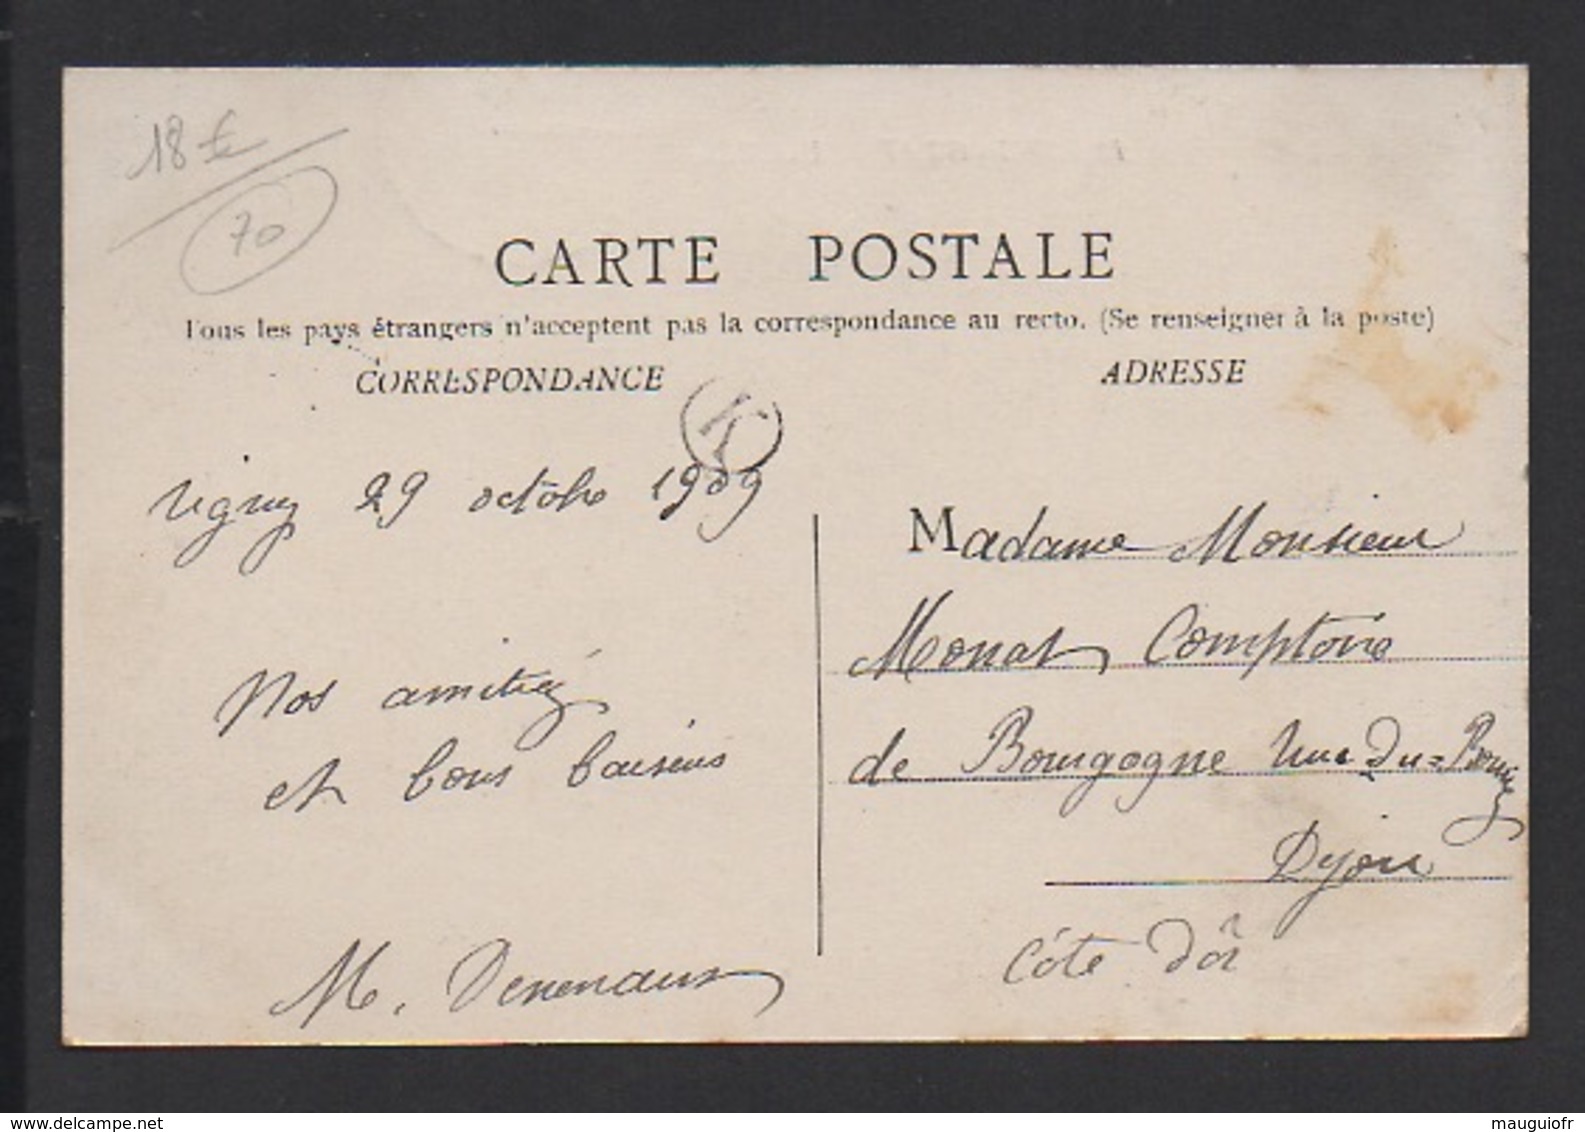 18 €
70
CARTE POSTALE
Tous les pays étrangers n'acceptent pas la correspondance au recto. (Se renseigner à la poste)
CORRESPONDANCE
K
Vigny 29 octobre 1909
Nos amitiés
et bons baisers
M.
ADRESSE
Madame Monsieur
Monat Comptoire
de Bourgogne Rue Du=Bourg
Dijon
Côte D'or
www.delcampe.net
mauguiofr